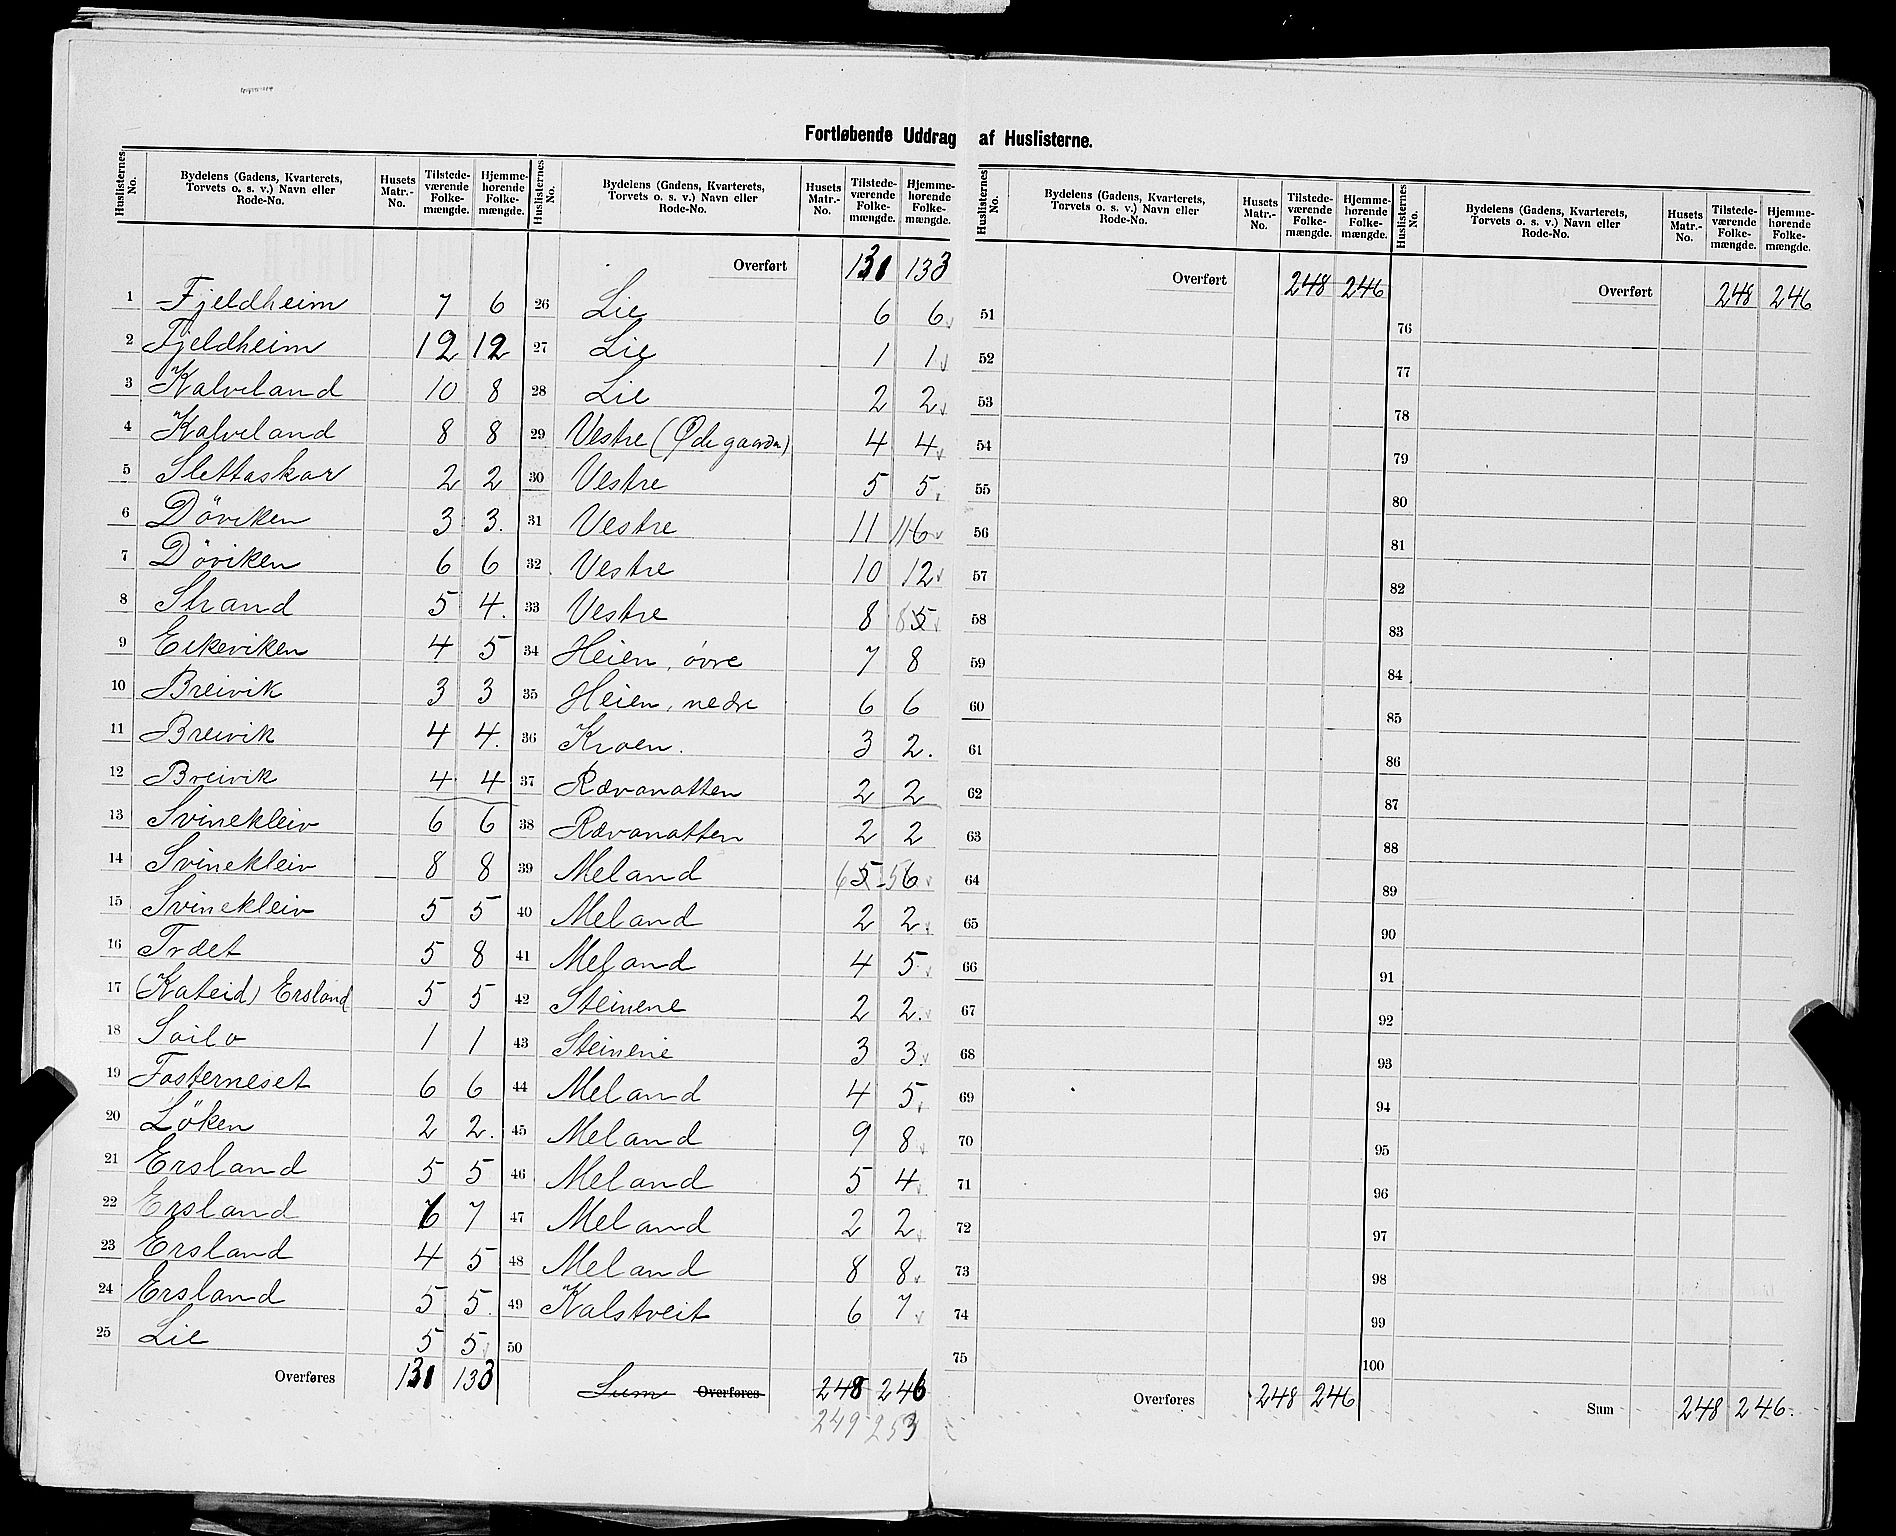 Fortløbende Uddrag af Huslisterne.
Huslisternes No. | Bydelens (Gadens, Kvarterets, Torvets o. s. v.) Navn eller Rode-No. | Husets Matr.-No. | Tilstede-værende Folke-mængde. | Hjemme-hørende Folke-mængde.
1 Fjeldheim 7 6
2 Fjeldheim 12 12
3 Kalveland 10 8
4 Kalveland 8 8
5 Slettaskar 2 2
6 Döviken 3 3.
7 Döviken 6 6
8 Strand 5 4.
9 Eikeviken 4 5
10 Breivik 3 3
11 Breivik 4 4.
12 Breivik 4 4
13 Svinekleiv 6 6
14 Svinekleiv 8 8
15 Svinekleiv 5 5
16 Træet 5 8
17 (Kateid) Ersland 5 5
18 Soilo 1 1
19 Fosterneset 6 6
20 Löken 2 2.
21 Ersland 5 5
22 Ersland 7
23 Ersland 4 5
24 Ersland 5 5.
25 Lie 5 5
Overføres 131 133
Huslisternes No. | Bydelens (Gadens, Kvarterets, Torvets o. s. v.) Navn eller Rode-No. | Husets Matr.-No. | Tilstede-værende Folke-mængde. | Hjemme-hørende Folke-mængde.
Overført 131 133
26 Lie 6 6
27 Lie 1 1
28 Lie 2 2
29 Vestre (Ødegaarden) 4 4
30 Vestre 5 5
31 Vestre 11 116
32 Vestre 10 12
33 Vestre 8 85
34 Heien, övre 7 8
35 Heien, nedre 6 6
36 Kroen. 3 2.
37 Rævanatten 2 2
38 Rævanatten 2 2
39 Meland 65 56
40 Meland 2 2
41 Meland 4 5
42 Steinene 2 2.
43 Steinene 3 3
44 Meland 4 5
45 Meland 9 8
46 Meland 5 4
47 Meland 2 2
48 Meland 8 8
49 Kalstveit 6 7
50
Sum Overføres 248 246
249 253
Huslisternes No. | Bydelens (Gadens, Kvarterets, Torvets o. s. v.) Navn eller Rode-No. | Husets Matr.-No. | Tilstede-værende Folke-mængde. | Hjemme-hørende Folke-mængde.
Overført 248 246
51
52
53
54
55
56
57
58
59
60
61
62
63
64
65
66
67
68
69
70
71
72
73
74
75
Overføres 248 246
Huslisternes No. | Bydelens (Gadens, Kvarterets, Torvets o. s. v.) Navn eller Rode-No. | Husets Matr.-No. | Tilstede-værende Folke-mængde. | Hjemme-hørende Folke-mængde.
Overført 248 246
76
77
78
79
80
81
82
83
84
85
86
87
88
89
90
91
92
93
94
95
96
97
98
99
100
Sum 248 246.